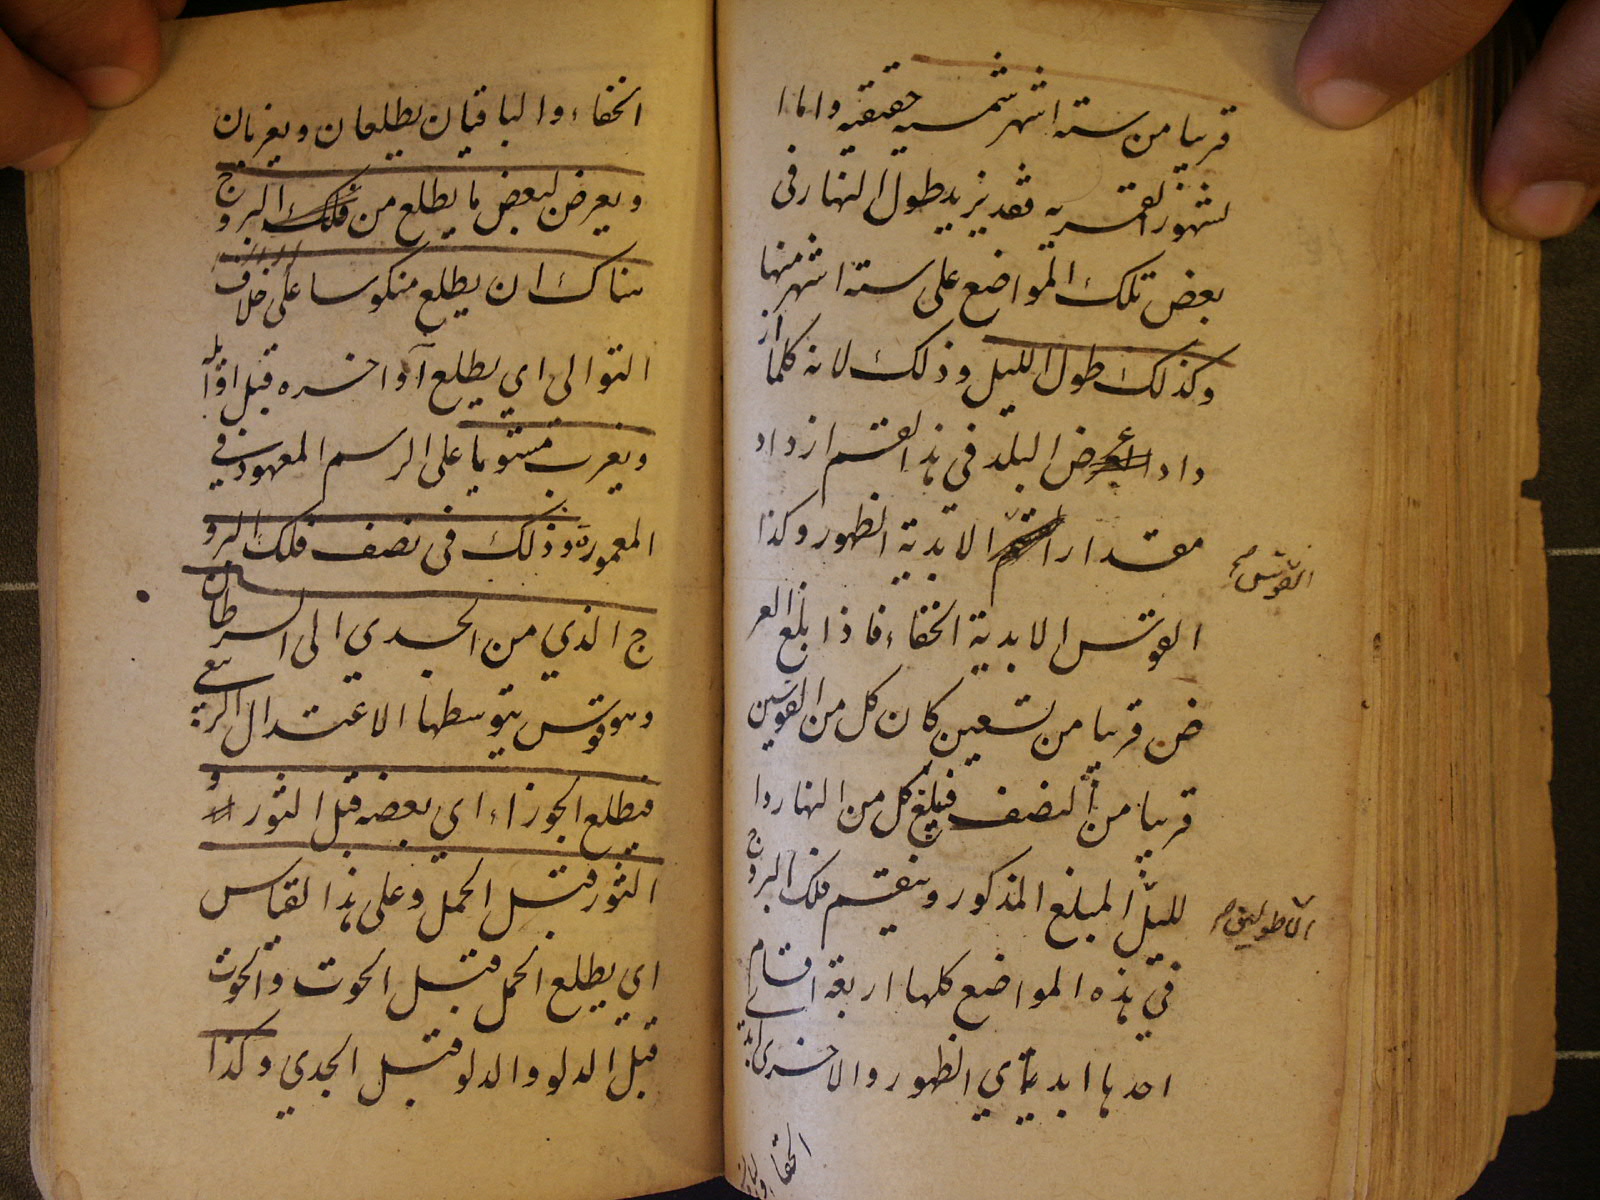 قريبا من ستة اشهر شمسية حقيقية واما ا
لشهور القمرية فقد يزيد طول النهار فى
بعض تلك المواضع على ستة اشهر منها
وكذلك طول الليل وذلك لانه كلما از
داد عرض البلد فى هذا القسم ازداد
مقدار الابدية الظهور وكذا
القوس صح
القوس الابدية الخفاء فاذا بلغ العر
ض قريبا من تسعين كان كل من القوسين
قريبا من النصف فيبلغ كل من النهار وا
لليل المبلغ المذكور وينقسم فلك البروج
الاطولين صح
في هذه المواضع كلها اربعة اقسام
احدها ابدي الظهور والاخرى ابدية
الخفاء والباقيان
الخفاء والباقيان يطلعان ويغربان
ويعرض لبعض ما يطلع من فلك البروج
هناك ان يطلع منكوسا على خلاف
التوالى اي يطلع اواخره قبل اوائله
ويغرب مستويا على الرسم المعهود في
المعمورة وذلك فى نصف فلك البرو
ج الذي من الجدي الى السرطان
وهو قوس يتوسطها الاعتدال الربيعي
فيطلع الجوزاء اي بعضه قبل الثور و
الثور قبل الحمل وعلى هذا القياس
اي يطلع الحمل قبل الحوت والحوت
قبل الدلو والدلو قبل الجدي وكذا